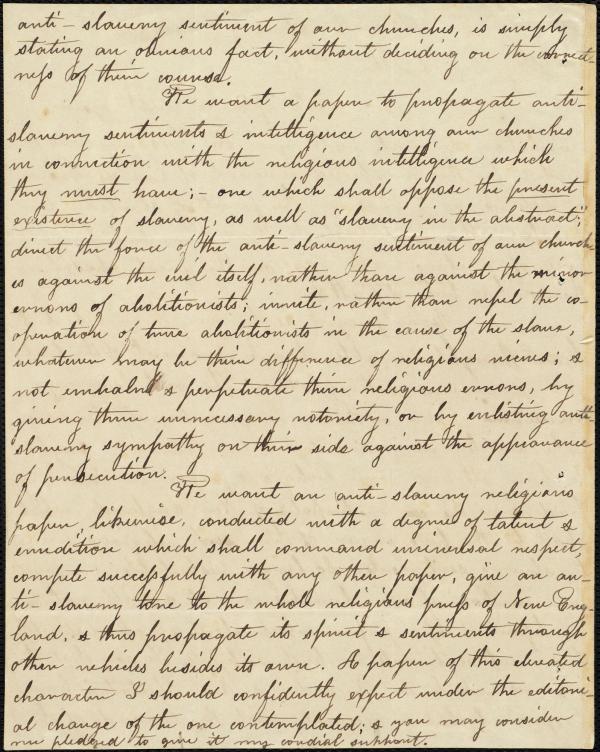 anti-slavery sentiment of our churches, is simply
stating an obvious fact, without deciding on the correct-
ness of their course.
We want a paper to propagate anti-
slavery sentiments & intelligence among our churches
in connection with the religious intelligence which
they must have; - one which shall oppose the present
existence of slavery, as well as "slavery in the abstract";
direct the force of the anti-slavery sentiment of our church-
es against the evil itself, rather than against the minor
errors of abolitionists; invite, rather than repel the co-
operation of true abolitionists in the cause of the slave,
whatever may be their difference of religious views; &
not embalm & perpetuate their religious errors, by
giving them unnecessary notoriety, or by enlisting anti-
slavery sympathy on their side against the appearance
of persecution.
We want an anti-slavery religious
paper, likewise, conducted with a degree of talent &
erudition which shall command universal respect,
compete successfully with any other paper, give an an-
ti-slavery tone to the whole religious press of New Eng-
land, & thus propagate its spirit & sentiments through
other vehicles besides its own. A paper of this elevated
character I should confidently expect under the editori-
al change of the one contemplated; & you may consider
me pledged to give it my cordial support.